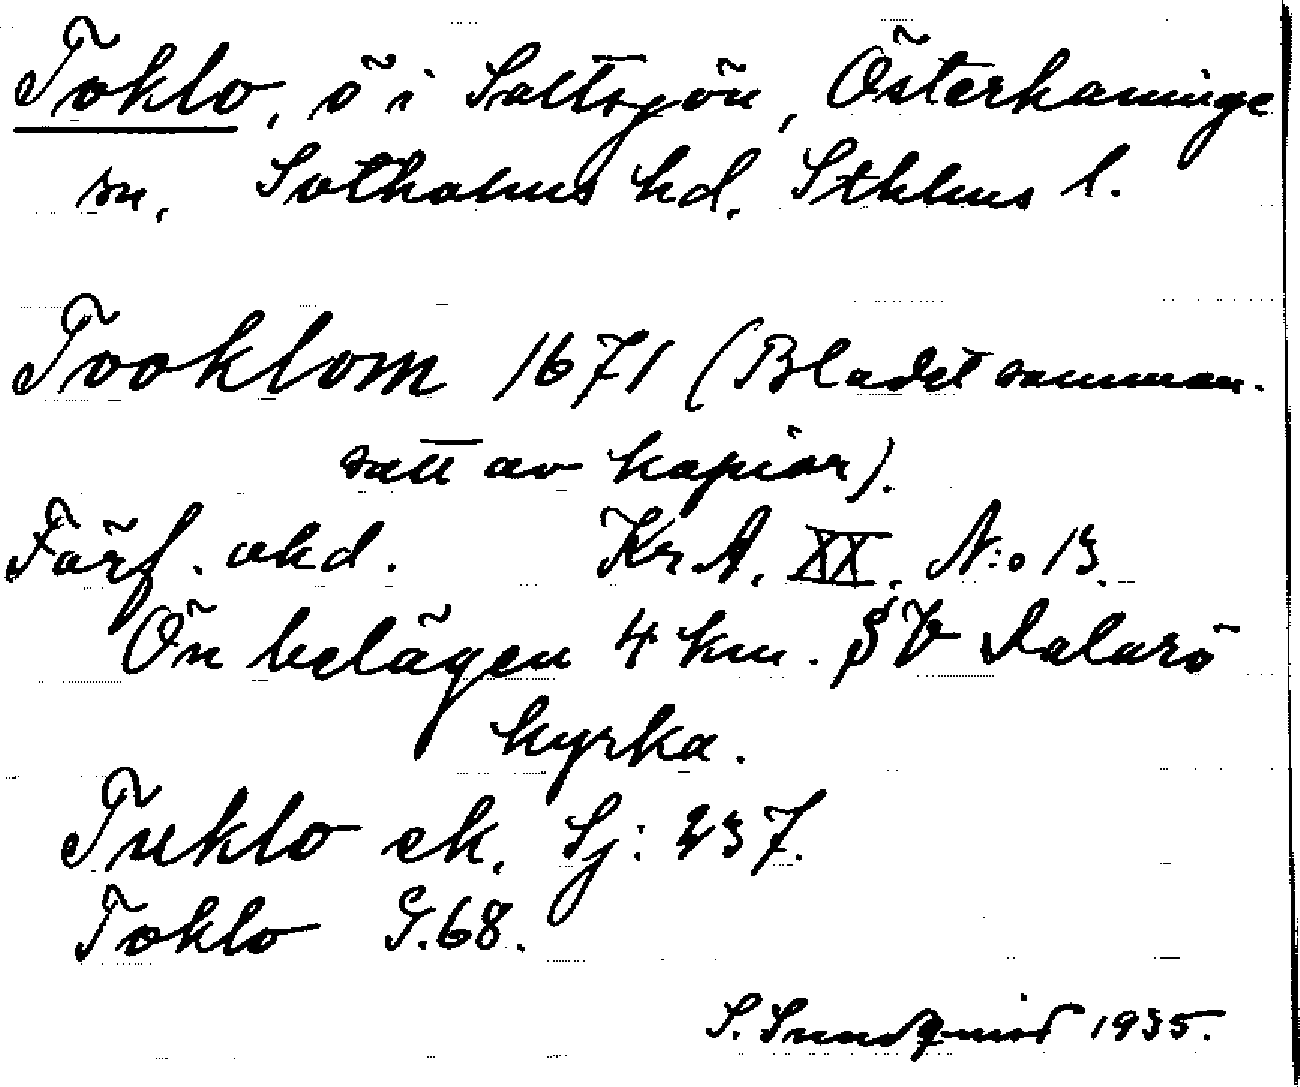 Toklo, ö i Saltsjön, Österhaninge
sn. Sotholms hd. Sthlms l.
Tooklom 1671 (Bladet samman-
satt av kopior).
Förf. okd. Kr.A. XX. N:o 13.
Ön belägen 4 km. SV Dalarö
kyrka.
Tuklo ek. Sj: 237.
Toklo G.68.
S. Sundqvist 1935.